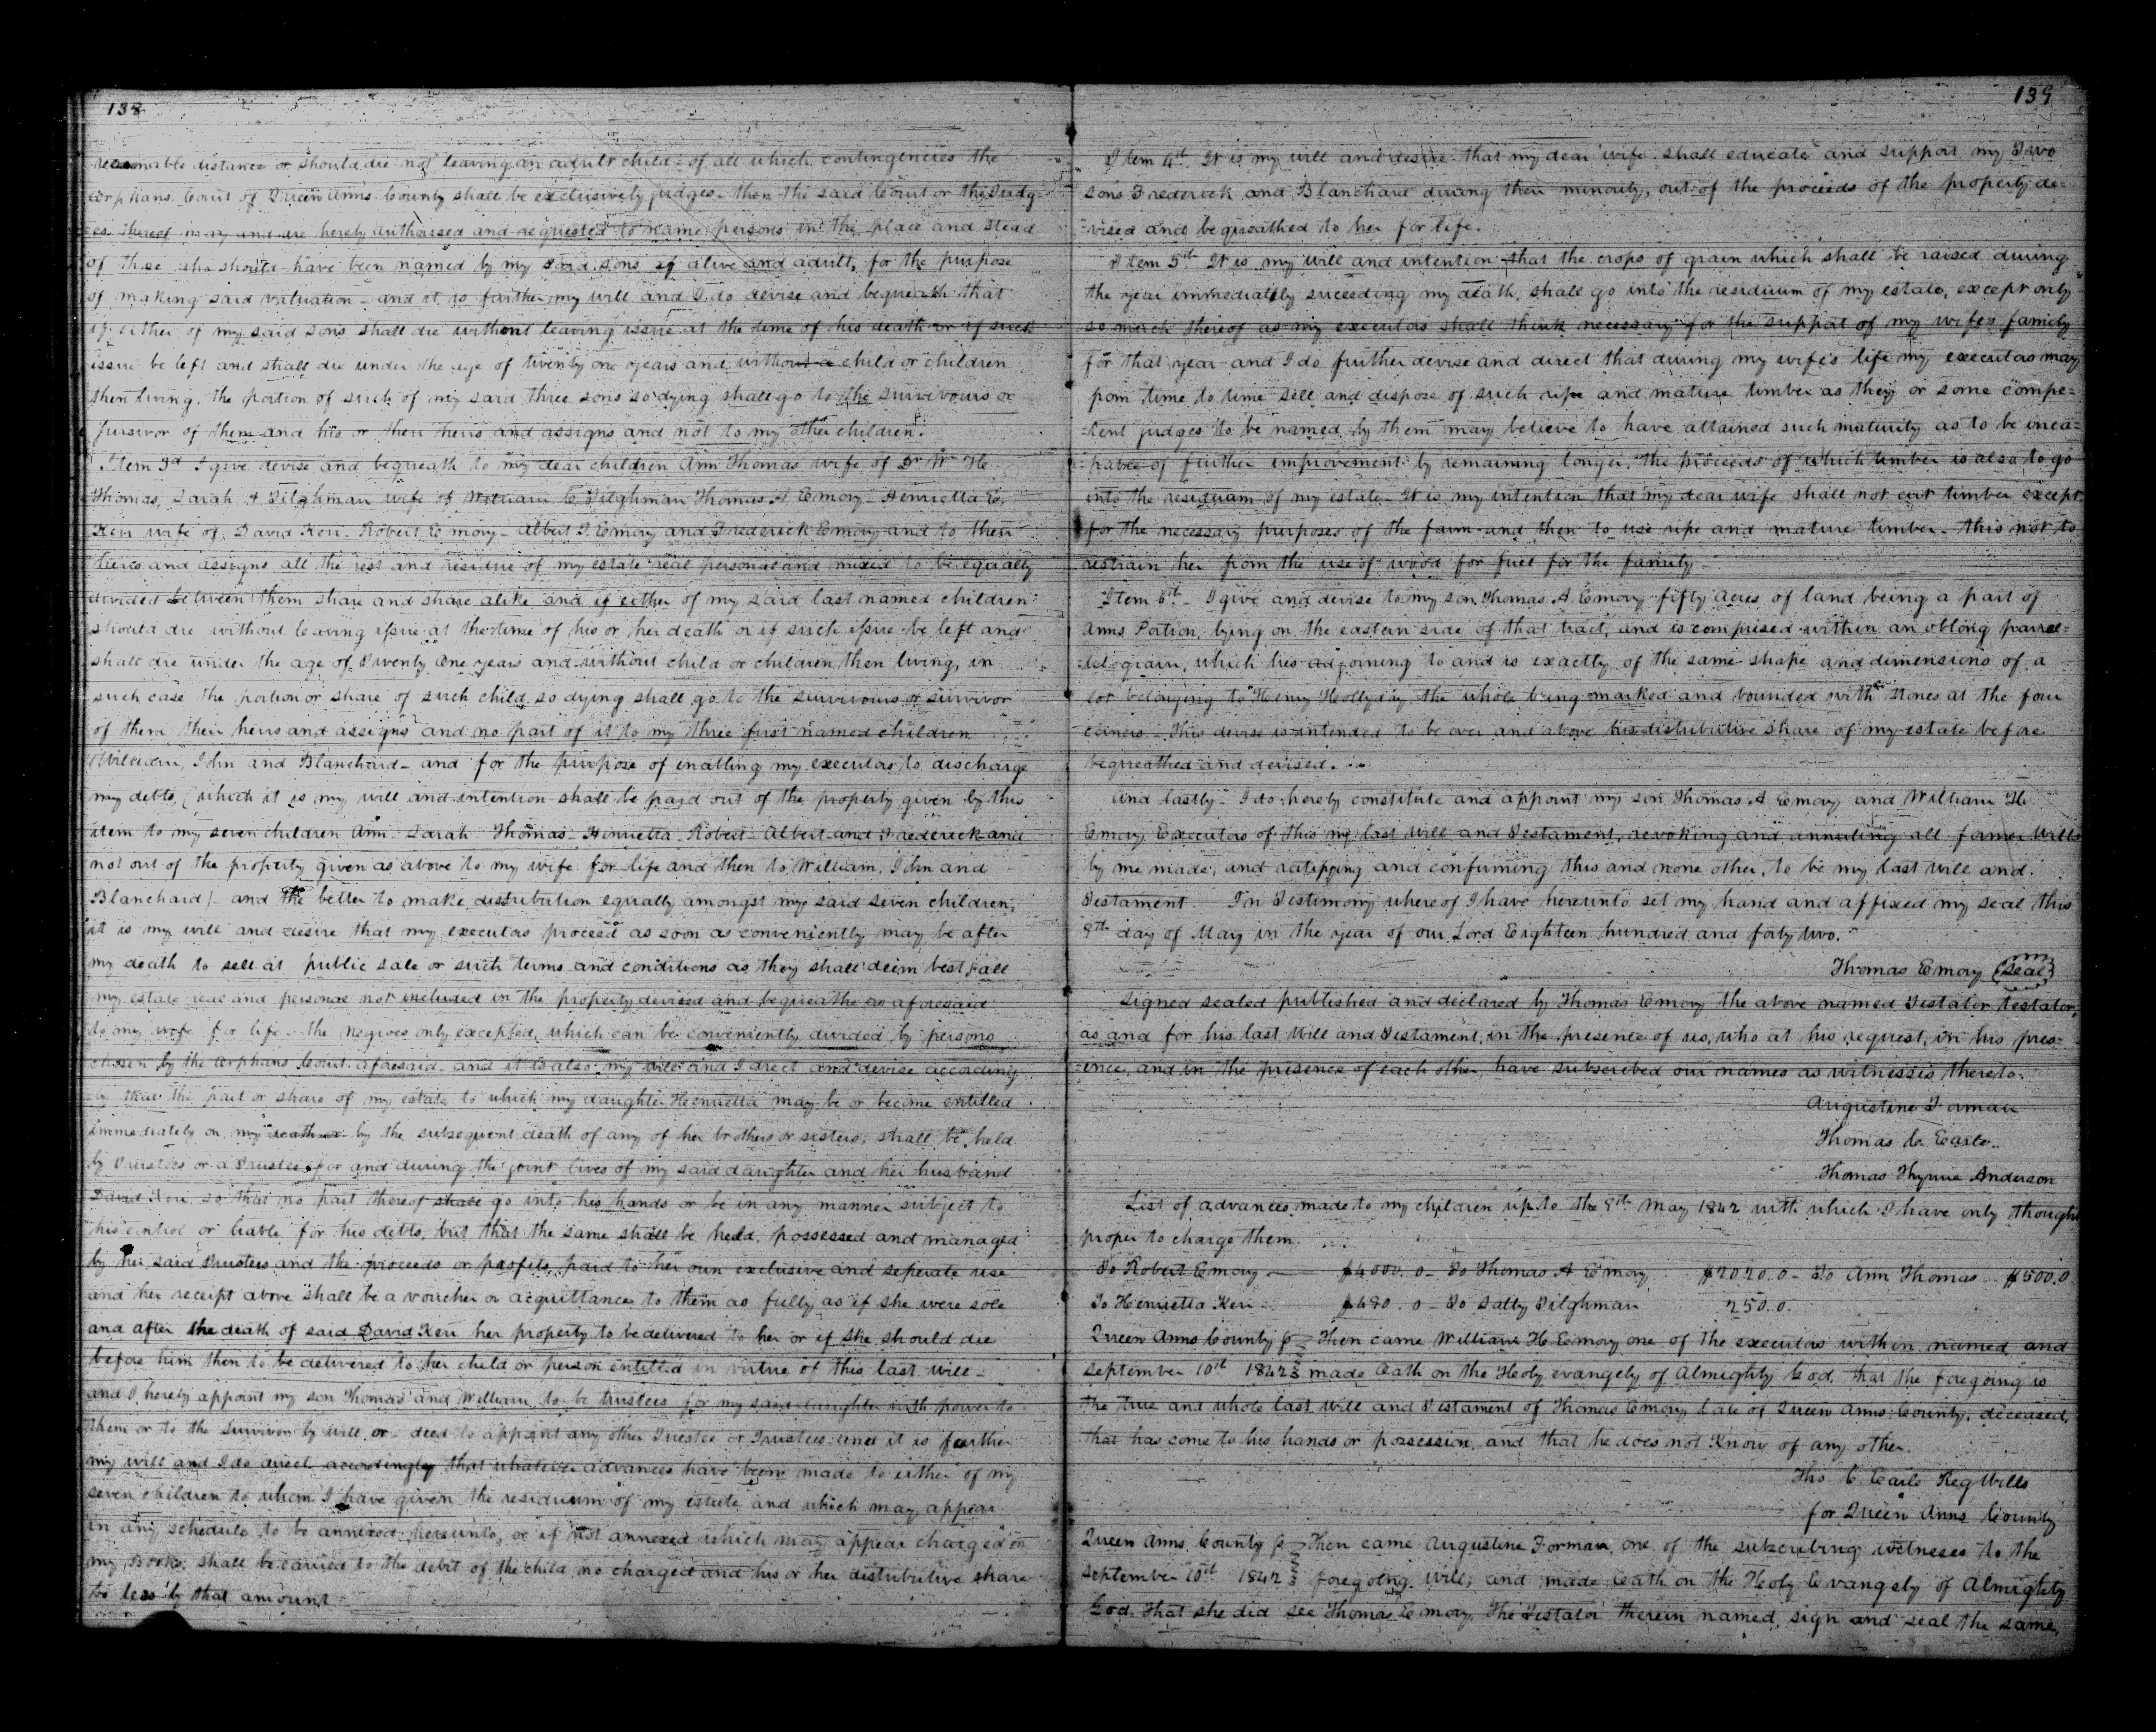 138
reasonable distance or should die not leaving an adult child - of all which contingencies the
orphans Court of Queen Anns County shall be exclusively judges - then the said Court or the Judg-
es thereof may and are hereby authorised and requested to name persons in the place and stead
of those who should have been named by my said sons if alive and adult, for the purpose
of making said valuation - and it is farther my will and I do devise and bequeath that
if either of my said sons shall die without leaving issue at the time of his death or if such
issue be left and shall die under the age of twenty one years and without a child or children
then living, the portion of such of my said three sons so dying shall go to the survivours or
survivor of them and his or their heirs and assigns and not to my other children.
Item 3d I give devise and bequeath to my dear children Ann Thomas wife of Dr Wm H
Thomas, Sarah A Tilghman wife of William C. Tilghman Thomas A Emory - Henrietta E.
Kerr wife of David Kerr - Robert Emory - Albert T. Emory and Frederick Emory and to their
heirs and assigns all the rest and residue of my estate real personal and mixed to be equally
divided between them share and share alike and if either of my said last named children
should die without leaving issue at the time of his or her death or if such issue be left and
shall die under the age of Twenty One years and without child or children then living, in
such case the portion or share of such child so dying shall go to the survivours or survivor
of them their heirs and assigns and no part of it to my three first named children
William, John and Blanchard - and for the purpose of enabling my executors to discharge
my debts, (which it is my will and intention shall be paid out of the property given by this
item to my seven children Ann - Sarah Thomas - Henrietta - Robert - Albert and Frederick and
not out of the property given as above to my wife for life and then to William, John and
Blanchard) - and the better to make distribution equally amongst my said seven children,
it is my will and desire that my executors proceed as soon as conveniently may be after
my death to sell at public sale or such terms and conditions as they shall deim best all
my estate real and personal not included in the property devised and bequeathe as aforesaid
to my wife for life - the negroes only excepted, which can be conveniently divided by persons
chosen by the Orphans Court aforesaid - and it is also my will and I direct and devise according-
ly that the part or share of my estate to which my daughter Henrietta may be or become entitled
immediately on my death or by the subsequent death of any of her brothers or sisters; shall be held
by Trustees or a Trustee for and during the joint lives of my said daughter and her husband
David Kerr so that no part thereof shall go into his hands or be in any manner subject to
his control or liable for his debts, but that the same shall be held, possessed and managed
by her said Trustees and the proceeds or profits paid to her own exclusive and seperate use
and her receipt above shall be a voucher or acquittances to them as fully as if she were sole
and after the death of said David Kerr her property to be delivered to her or if she should die
before him then to be delivered to her child or person entitled in virtue of this last will -
and I hereby appoint my son Thomas and William to be trustees for my said daughter with power to
them or to the Survivor by will or deed to appoint any other Trustee or Trustees and it is further
my will and I do direct accordingly that whatever advances have been made to either of my
seven children to whom I have given the residuum of my estate and which may appear
in any schedule to be annexed hereunto, or if not annexed which may appear charged on
my Books, shall be carried to the debit of the child so charged and his or her distributive share
be less by that amount
139
Item 4th It is my will and desire that my dear wife shall educate and support my Two
sons Frederick and Blanchard during their minority, out of the proceeds of the property de-
-vised and bequeathed to her for life.
Item 5th It is my will and intention that the crops of grain which shall be raised during
the year immediately suceeding my death, shall go into the residuum of my estate, except only
so much thereof as my executors shall think necessary for the support of my wife's family
for that year and I do further devise and direct that during my wife's life my executors may
from time to time sell and dispose of such ripe and mature timber as they or some compe=
=tent judges to be named by them may believe to have attained such maturity as to be inca=
=pable of further improvement by remaining longer, the proceeds of which timber is also to go
into the residuum of my estate - It is my intention that my dear wife shall not cut timber except
for the necessary purposes of the farm and then to use ripe and mature timber - this not to
restrain her from the use of wood for fuel for the family -
Item 6th - I give and devise to my son Thomas A Emory fifty acres of land being a part of
Anns Portion, lying on the eastern side of that tract, and is comprised within an oblong parral=
=lelogram, which lies adjoining to and is exactly of the same shape and dimensions of a
lot belonging to Henry Hollyday the whole being marked and bounded with stones at the four
corners - This devise is intended to be over and above his distributive share of my estate before
bequeathed and devised.
And lastly - I do hereby constitute and appoint my son Thomas A Emory and William H
Emory Executors of this my last Will and Testament, revoking and annuling all former Wills
by me made, and ratifying and confirming this and none other, to be my last will and
Testament. In Testimony whereof I have hereunto set my hand and affixed my seal this
9th day of May in the year of our Lord Eighteen hundred and forty two.
Thomas Emory (Seal)
Signed sealed published and declared by Thomas Emory the above named Testator, testator,
as and for his last Will and Testament, in the presence of us, who at his request, in his pres-
ence, and in the presence of each other, have subscribed our names as witnesses thereto.
Augustine Forman
Thomas C. Earle
Thomas Thynne Anderson
List of advances made to my children up to the 9th May 1842 with which I have only thought
proper to charge them.
To Robert Emory $4000.0 - To Thomas A Emory $2020.0 - To Ann Thomas $500.0
To Henrietta Kerr $480.0 - To Sally Tilghman 250.0.
Queen Anns County Sc Then came William H Emory one of the executors within named and
September 10th 1842 made Oath on the Holy evangely of Almighty God, that the foregoing is
the true and whole last Will and Testament of Thomas Emory late of Queen Anns County, deceased,
that has come to his hands or possession, and that he does not Know of any other.
Tho. C Earle Reg Wills
for Queen Anns County
Queen Anns County Sc Then came Augustine Forman, one of the subscribing witnesses to the
September 10th 1842 foregoing will, and made Oath on the Holy Evangely of Almighty
God. That she did see Thomas Emory, the Testator therein named, sign and seal the same,